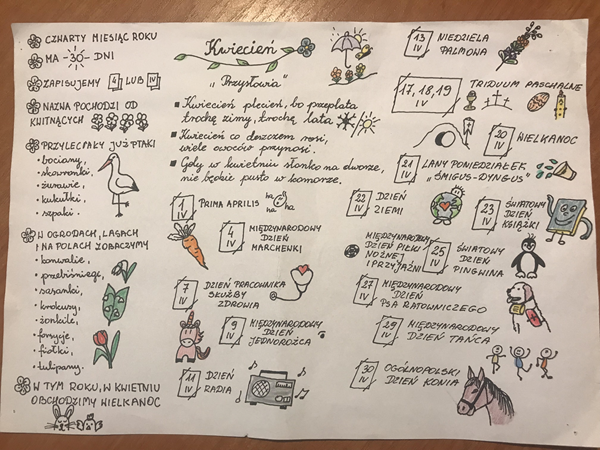 CZWARTY MIESIĄC ROKU
MA -30- DNI
ZAPISUJEMY 4 LUB IV
NAZWA POCHODZI OD
KWITNĄCYCH
PRZYLECIAŁY JUŻ PTAKI
• bociany,
• skowronki,
• żurawie,
• kukułki,
• szpaki.
W OGRODACH, LASACH
I NA POLACH ZOBACZYMY
• konwalie,
• przebiśniegi,
• sasanki,
• krokusy,
• żonkile,
• forsycje,
• fiołki,
• tulipany.
W TYM ROKU, W KWIETNIU
OBCHODZIMY WIELKANOC
Kwiecień
„Przysłowia"
▪ Kwiecień plecień, bo przeplata
trochę zimy, trochę lata.
▪ Kwiecień co deszczem rosi,
wiele owoców przynosi.
▪ Gdy w kwietniu słonko na dworze,
nie będzie pusto w komorze.
1 IV PRIMA APRILIS
ha ha ha
4 IV MIĘDZYNARODOWY
DZIEŃ
MARCHEWKI
7 IV DZIEŃ PRACOWNIKA
SŁUŻBY
ZDROWIA
9 IV MIĘDZYNARODOWY
DZIEŃ
JEDNOROŻCA
11 IV DZIEŃ
RADIA
13 IV NIEDZIELA
PALMOWA
17, 18, 19 IV TRIDUUM PASCHALNE
20 IV WIELKANOC
21 IV LANY PONIEDZIAŁEK
„ŚMIGUS-DYNGUS"
22 IV DZIEŃ
ZIEMI
23 IV ŚWIATOWY
DZIEŃ
KSIĄŻKI
MIĘDZYNARODOWY
DZIEŃ PIŁKI
NOŻNEJ
I PRZYJAŹNI
25 IV ŚWIATOWY
DZIEŃ
PINGWINA
27 IV MIĘDZYNARODOWY
DZIEŃ
PSA RATOWNICZEGO
29 IV MIĘDZYNARODOWY
DZIEŃ TAŃCA
30 IV OGÓLNOPOLSKI
DZIEŃ KONIA